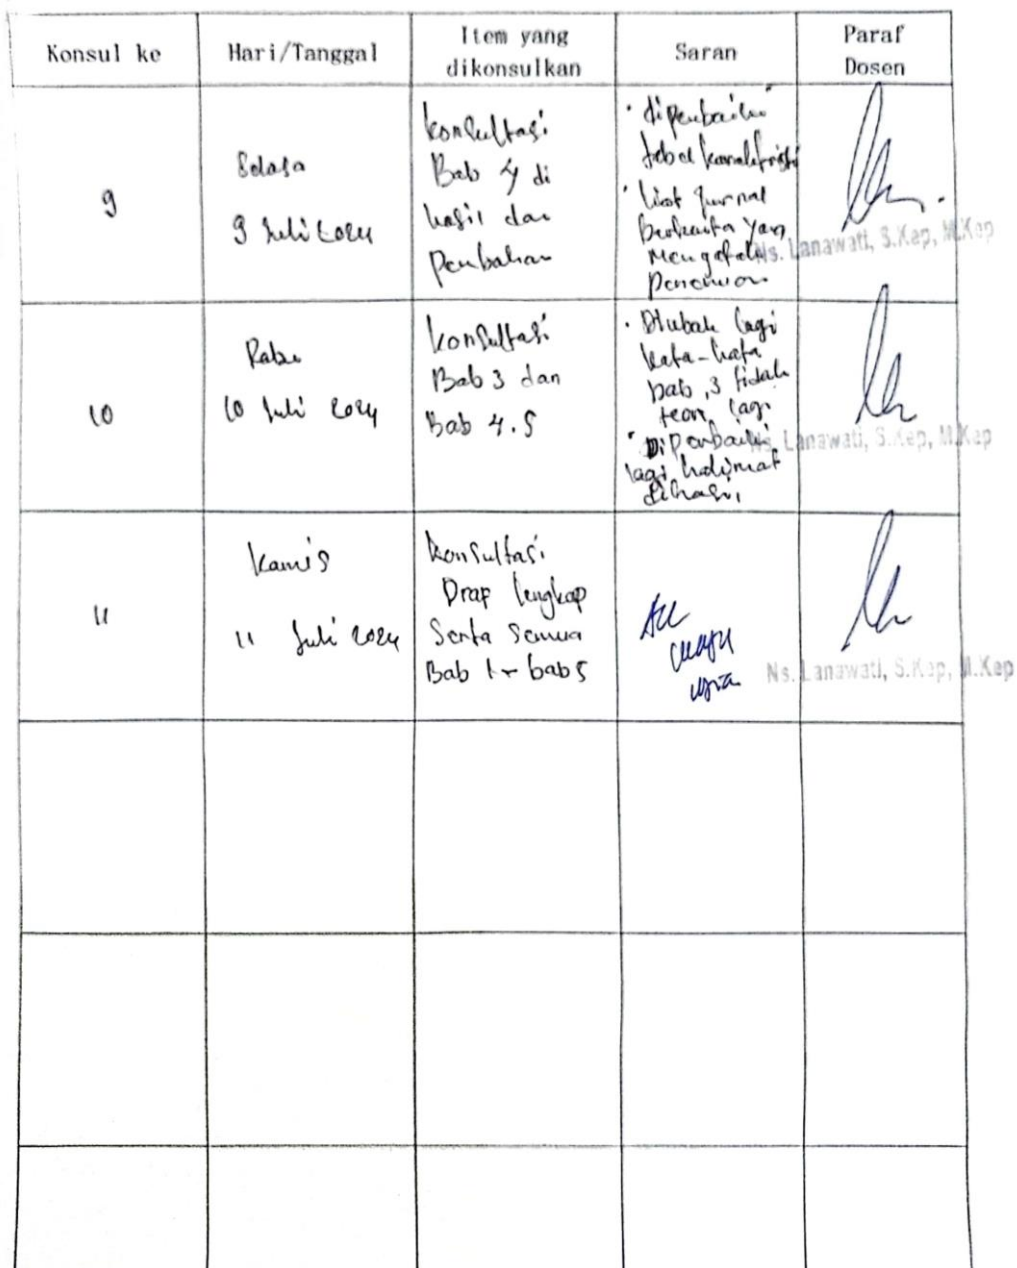 Konsul ke
Hari/Tanggal
Item yang
dikonsulkan
Saran
Paraf
Dosen
9
Selasa
9 Juli 2024
Konsultasi
Bab 4 di
hasil dan
Pembahan
• diperbaiki
tabel karakteristik
• lihat jurnal
yang
Ns. Lanawati, S.Kep, M.Kep
10
Rabu
10 Juli 2024
Konsultasi
Bab 3 dan
Bab 4.5
• Diubah lagi
kata-kata
bab 3 tidak
teori lagi
• Diperbaiki
lagi kalimat
Ns. Lanawati, S.Kep, M.Kep
11
Kamis
11 Juli 2024
Konsultasi
Drap lengkap
Serta Semua
Bab 1 - bab 5
Acc
Ns. Lanawati, S.Kep, M.Kep